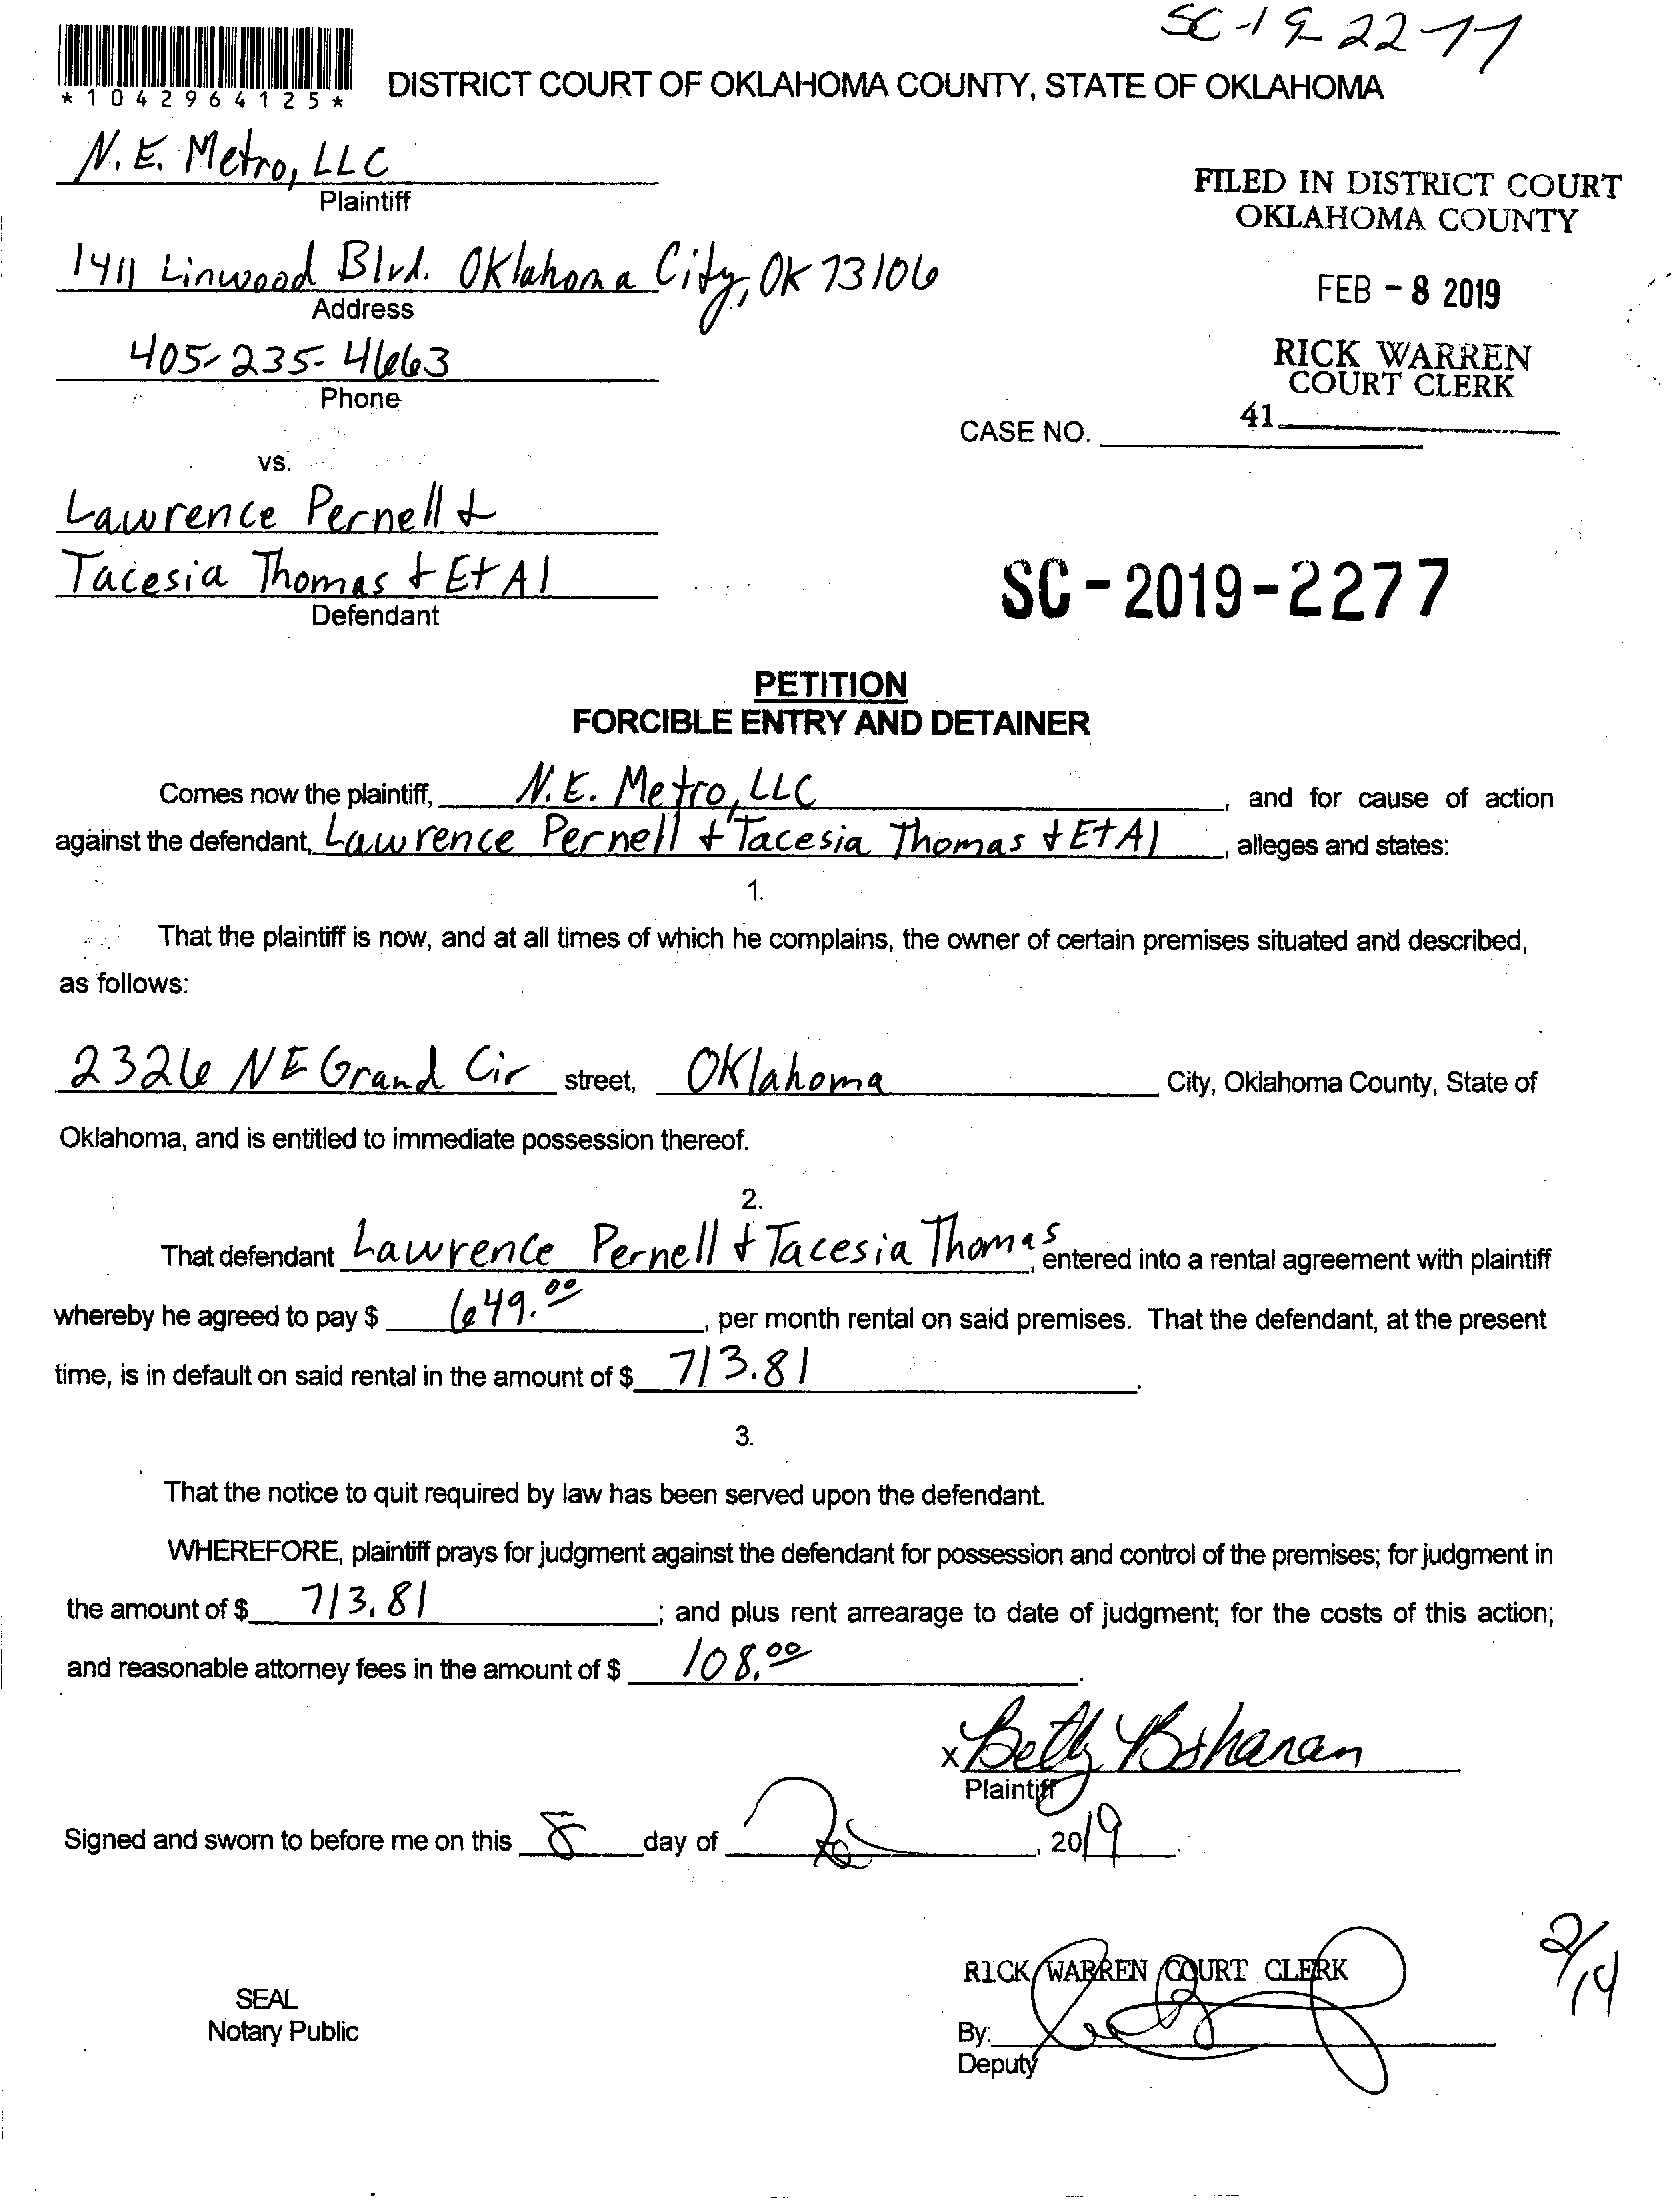 SC-19-2277
*1042964125*
DISTRICT COURT OF OKLAHOMA COUNTY, STATE OF OKLAHOMA
N.E. Metro, LLC
Plaintiff
FILED IN DISTRICT COURT
OKLAHOMA COUNTY
1411 Linwood Blvd. Oklahoma City, OK 73106
Address
FEB - 8 2019
405-235-4663
Phone
RICK WARREN
COURT CLERK
41
CASE NO.
vs.
Lawrence Pernell &
Tacesia Thomas & Et Al
Defendant
SC - 2019 - 2277
PETITION
FORCIBLE ENTRY AND DETAINER
Comes now the plaintiff, N.E. Metro, LLC, and for cause of action
against the defendant, Lawrence Pernell & Tacesia Thomas & Et Al, alleges and states:
1.
That the plaintiff is now, and at all times of which he complains, the owner of certain premises situated and described,
as follows:
2326 NE Grand Cir street, Oklahoma City, Oklahoma County, State of
Oklahoma, and is entitled to immediate possession thereof.
2.
That defendant Lawrence Pernell & Tacesia Thomas, entered into a rental agreement with plaintiff
whereby he agreed to pay $ 649.00, per month rental on said premises. That the defendant, at the present
time, is in default on said rental in the amount of $ 713.81.
3.
That the notice to quit required by law has been served upon the defendant.
WHEREFORE, plaintiff prays for judgment against the defendant for possession and control of the premises; for judgment in
the amount of $ 713.81; and plus rent arrearage to date of judgment; for the costs of this action;
and reasonable attorney fees in the amount of $ 108.00.
x Betty Bohanan
Plaintiff
Signed and sworn to before me on this 8 day of , 2019.
RICK WARREN COURT CLERK
2/14
SEAL
Notary Public
By:
Deputy